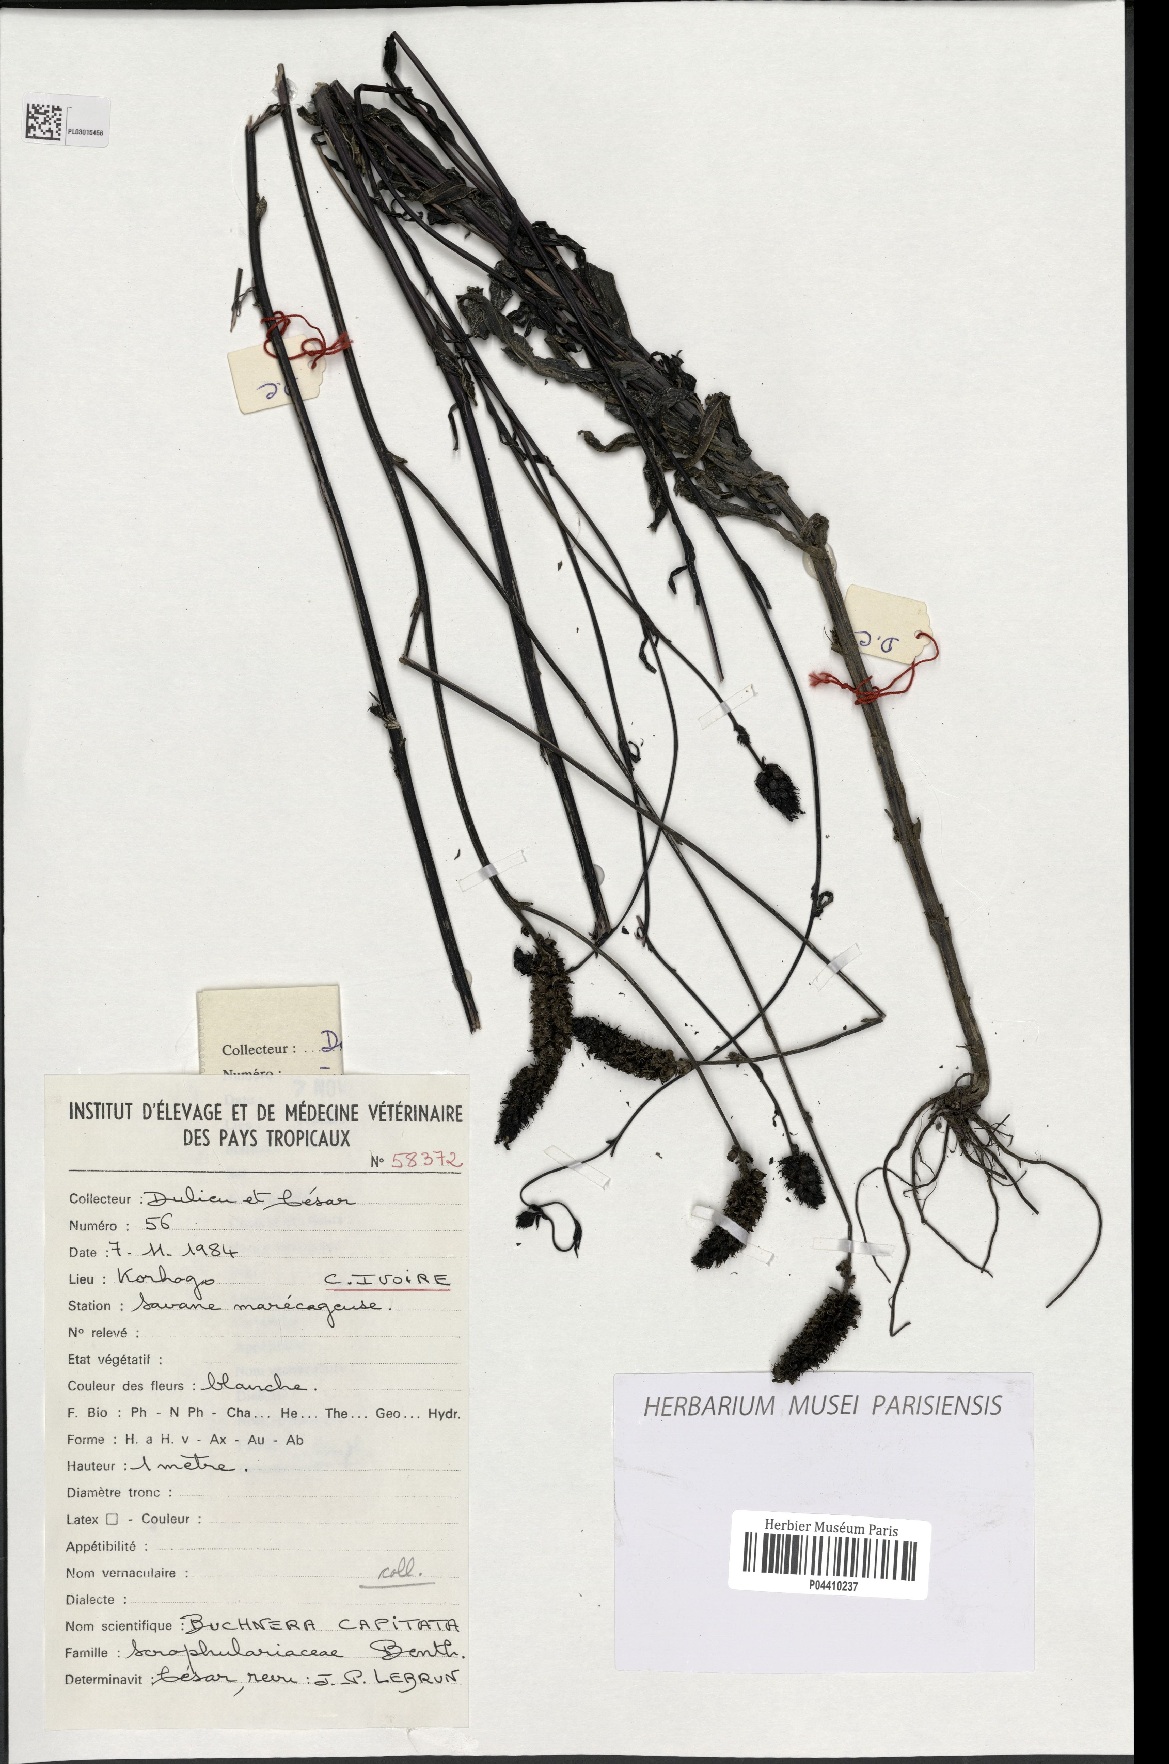 PL00015456
DC
D.C
Collecteur :
Numéro :
INSTITUT D'ÉLEVAGE ET DE MÉDECINE VÉTÉRINAIRE
DES PAYS TROPICAUX
N° 58372
Collecteur : Dulieu et César
Numéro : 56
Date : 7. 11. 1984
Lieu : Korhogo C. IVOIRE
Station : Savane marécageuse.
N° relevé :
Etat végétatif :
Couleur des fleurs : blanche.
F. Bio : Ph - N Ph - Cha... He... The... Geo... Hydr.
Forme : H. a H. v - Ax - Au - Ab
Hauteur : 1 mètre.
Diamètre tronc :
Latex □ - Couleur :
Appétibilité :
Nom vernaculaire : coll.
Dialecte :
Nom scientifique : BUCHNERA CAPITATA
Famille : Scrophulariaceae Benth.
Determinavit : César, revu : J. P. LEBRUN
HERBARIUM MUSEI PARISIENSIS
Herbier Muséum Paris
P04410237